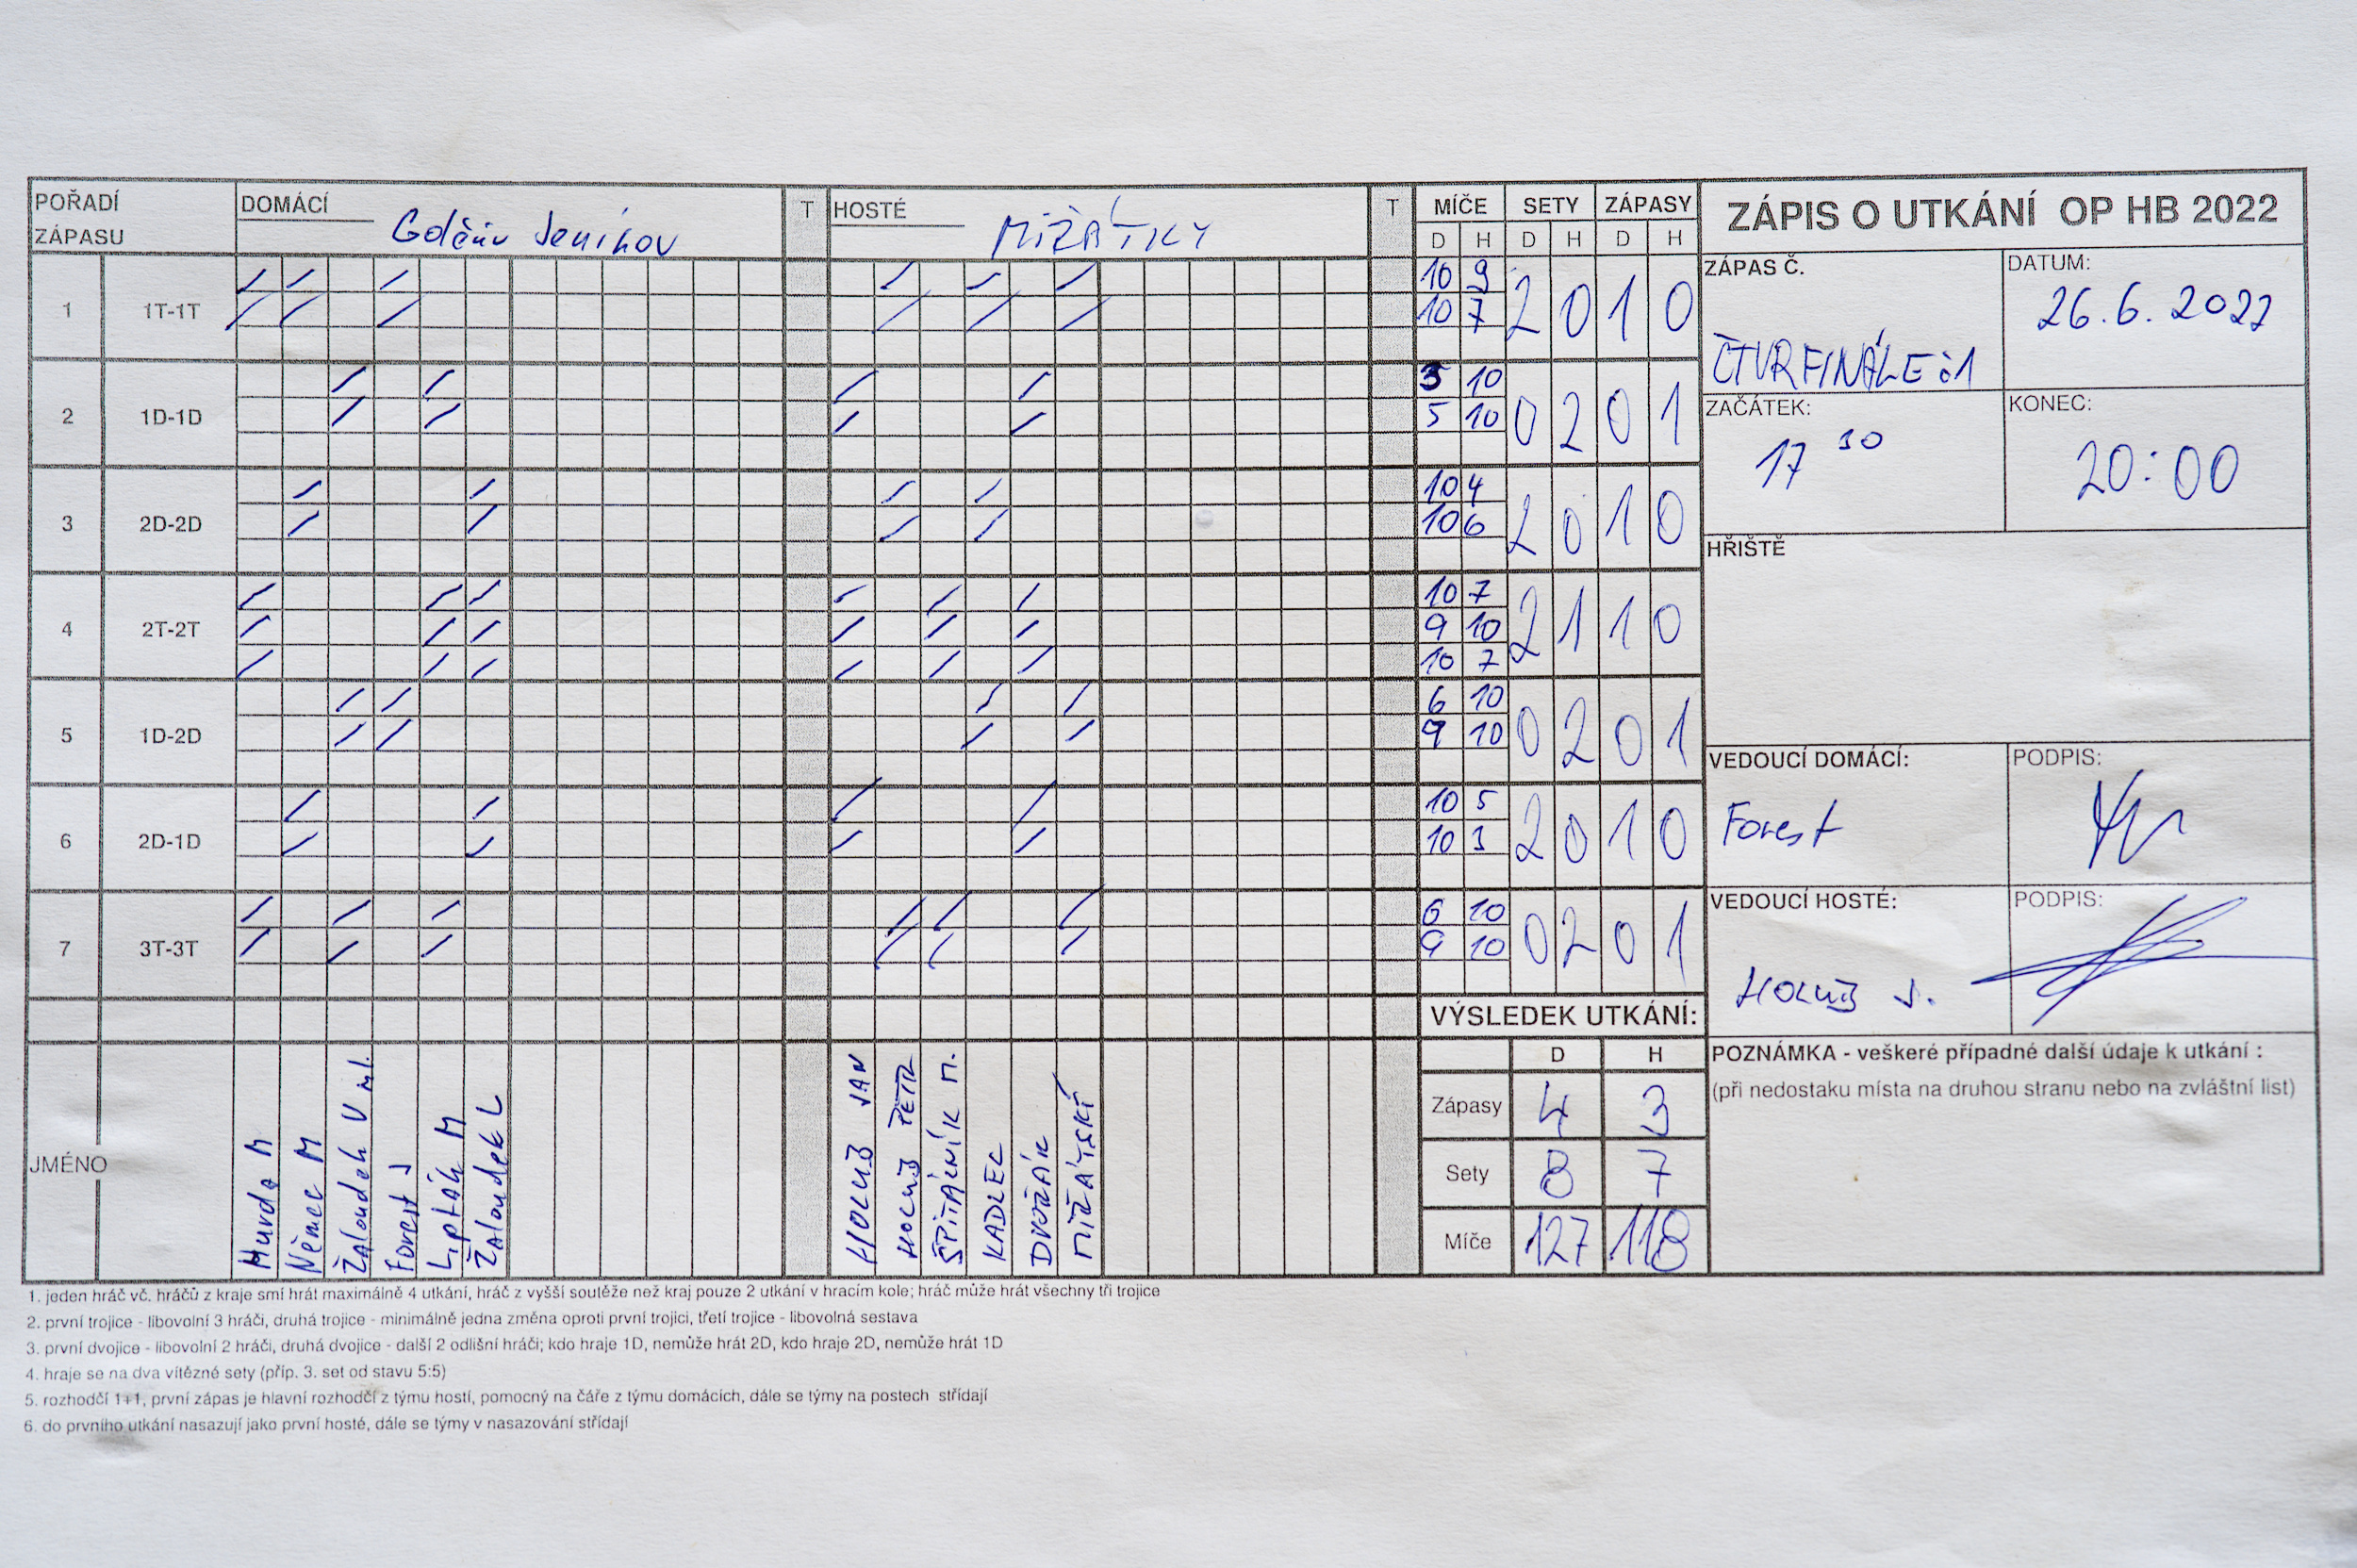 POŘADÍ ZÁPASU DOMÁCÍ Golčův Jeníkov T HOSTÉ MÍŽÁTKY T MÍČE SETY ZÁPASY
D H D H D H
ZÁPIS O UTKÁNÍ OP HB 2022
ZÁPAS Č. ČTVRFINÁLE č1
DATUM: 26.6.2022
1 1T-1T 10 9 2 0 1 0
10 7
2 1D-1D 5 10 0 2 0 1
5 10
3 2D-2D 10 4 2 0 1 0
10 6
4 2T-2T 10 7 2 1 1 0
9 10
10 7
5 1D-2D 6 10 0 2 0 1
9 10
6 2D-1D 10 5 2 0 1 0
10 3
7 3T-3T 6 10 0 2 0 1
9 10
ZAČÁTEK: 17 30
KONEC: 20:00
HŘIŠTĚ
VEDOUCÍ DOMÁCÍ: Forest
PODPIS:
VEDOUCÍ HOSTÉ: HOLUB J.
PODPIS:
VÝSLEDEK UTKÁNÍ:
D H
Zápasy 4 3
Sety 8 7
Míče 127 118
POZNÁMKA - veškeré případné další údaje k utkání :
(při nedostaku místa na druhou stranu nebo na zvláštní list)
JMÉNO
Němec M
Žaloudek V ml.
Forest J
Lipták M
Žaloudek L
HOLUB JAN
HOLUB PETR
ŠPITÁLNÍK M.
KADLEC
DVOŘÁK
MÍŽÁTSKÝ
1. jeden hráč vč. hráčů z kraje smí hrát maximálně 4 utkání, hráč z vyšší soutěže než kraj pouze 2 utkání v hracím kole; hráč může hrát všechny tři trojice
2. první trojice - libovolní 3 hráči, druhá trojice - minimálně jedna změna oproti první trojici, třetí trojice - libovolná sestava
3. první dvojice - libovolní 2 hráči, druhá dvojice - další 2 odlišní hráči; kdo hraje 1D, nemůže hrát 2D, kdo hraje 2D, nemůže hrát 1D
4. hraje se na dva vítězné sety (příp. 3. set od stavu 5:5)
5. rozhodčí 1+1, první zápas je hlavní rozhodčí z týmu hostí, pomocný na čáře z týmu domácích, dále se týmy na postech střídají
6. do prvního utkání nasazují jako první hosté, dále se týmy v nasazování střídají